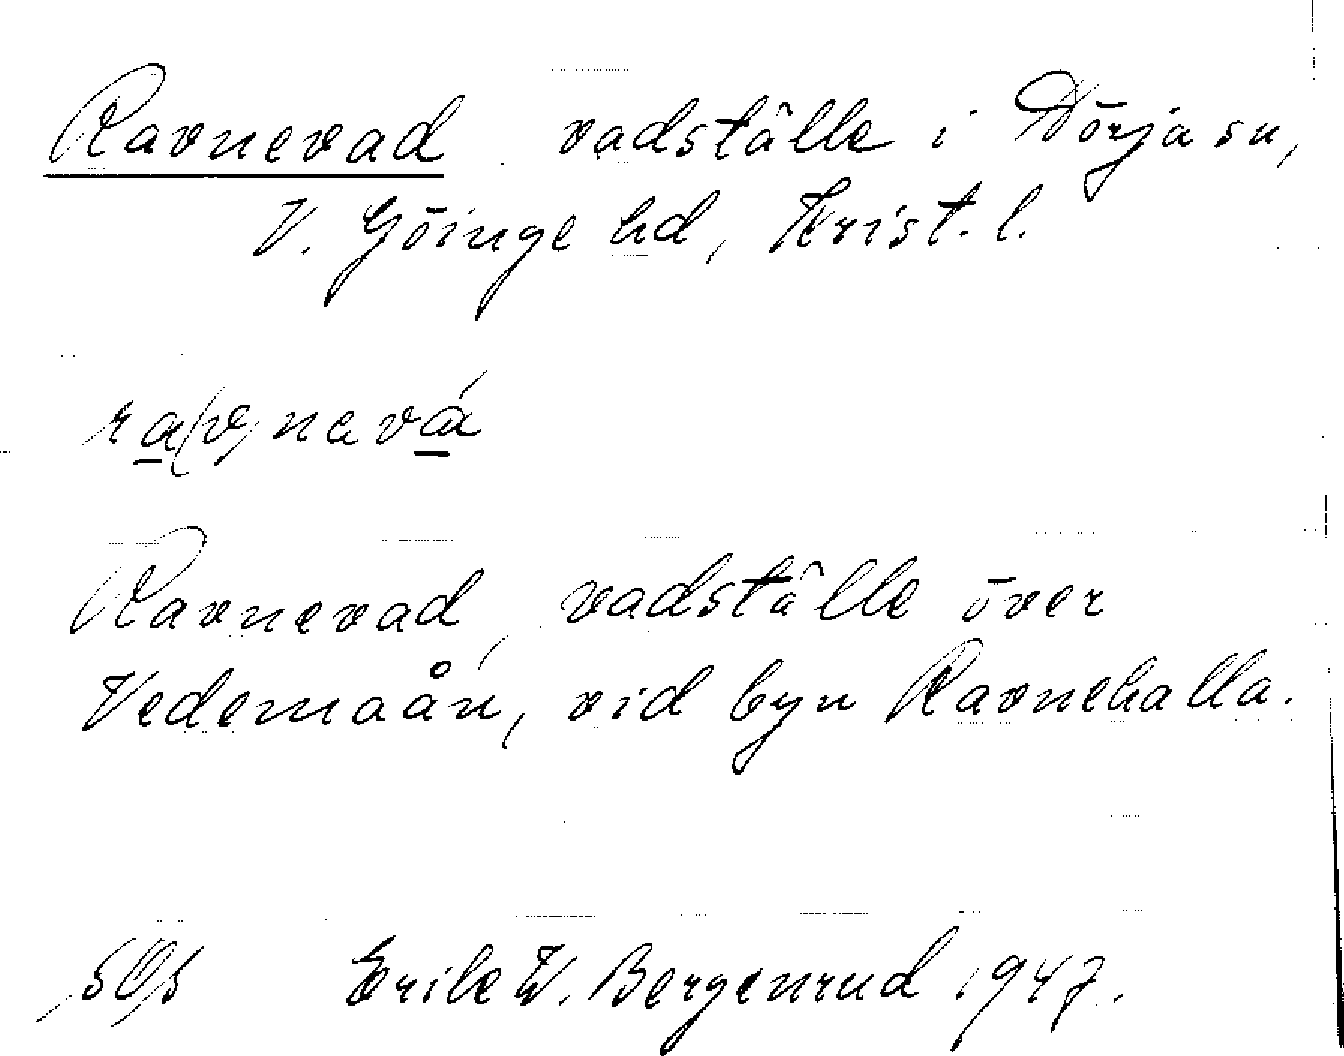 Ravnevad vadställe i Nörja sn,
V. Göinge hd, Krist. l.
ra(v)navá
Ravnevad, vadställe över
Vedemaån, vid byn Ravnehalla.
Erik W. Bergenrud 1947.